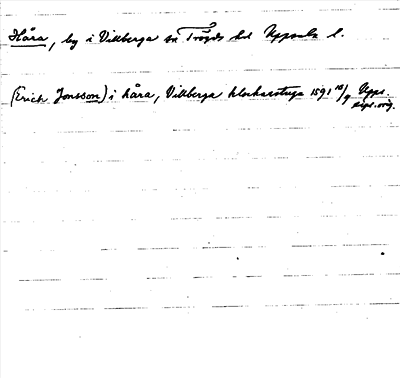 Håra, by i Villberga sn Trögds hd Uppsala l.
(Erich Jonsson) i håra, Villberga klockarstuga 1591 10/9 Upps.
dipl. orig.